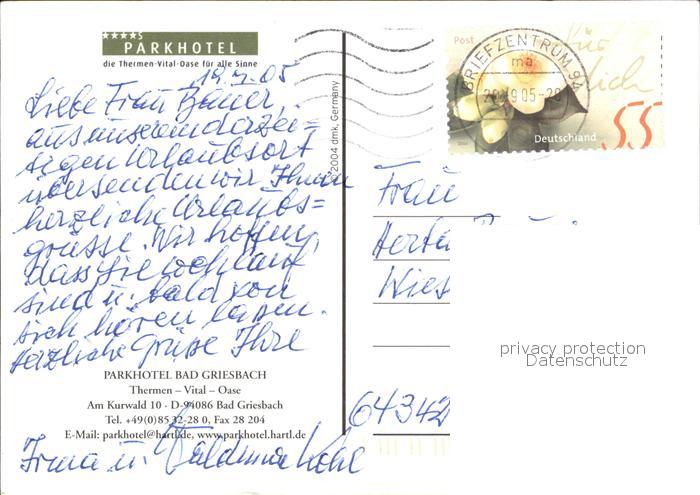 ★★★★S
PARKHOTEL
die Thermen-Vital-Oase für alle Sinne
18.9.05
Liebe Frau Bauer,
aus unserem derzei=
tigen Urlaubsort
übersenden wir Ihnen
herzliche Urlaubs=
grüsse. Wir hoffen,
dass Sie wohlauf
sind u. bald von
sich hören lassen.
Herzliche Grüße Ihre
PARKHOTEL BAD GRIESBACH
Thermen – Vital – Oase
Am Kurwald 10 · D-94086 Bad Griesbach
Tel. +49(0)85 32-28 0, Fax 28 204
E-Mail: parkhotel@hartl.de, www.parkhotel.hartl.de
Irma u. Waldemar
© 2004 dmk, Germany
Post
für
BRIEFZENTRUM 94
ma
20.9.05-20
Deutschland
55
Frau
Herta
Wies
64342
privacy protection
Datenschutz